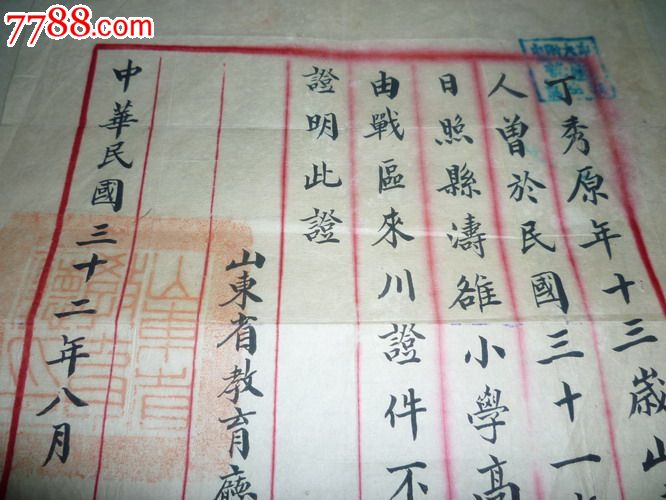 7788.com
丁秀原年十三歲山
人曾於民國三十一
日照縣濤雒小學高
由戰區來川證件不
證明此證
山東省教育廳
中華民國三十二年八月